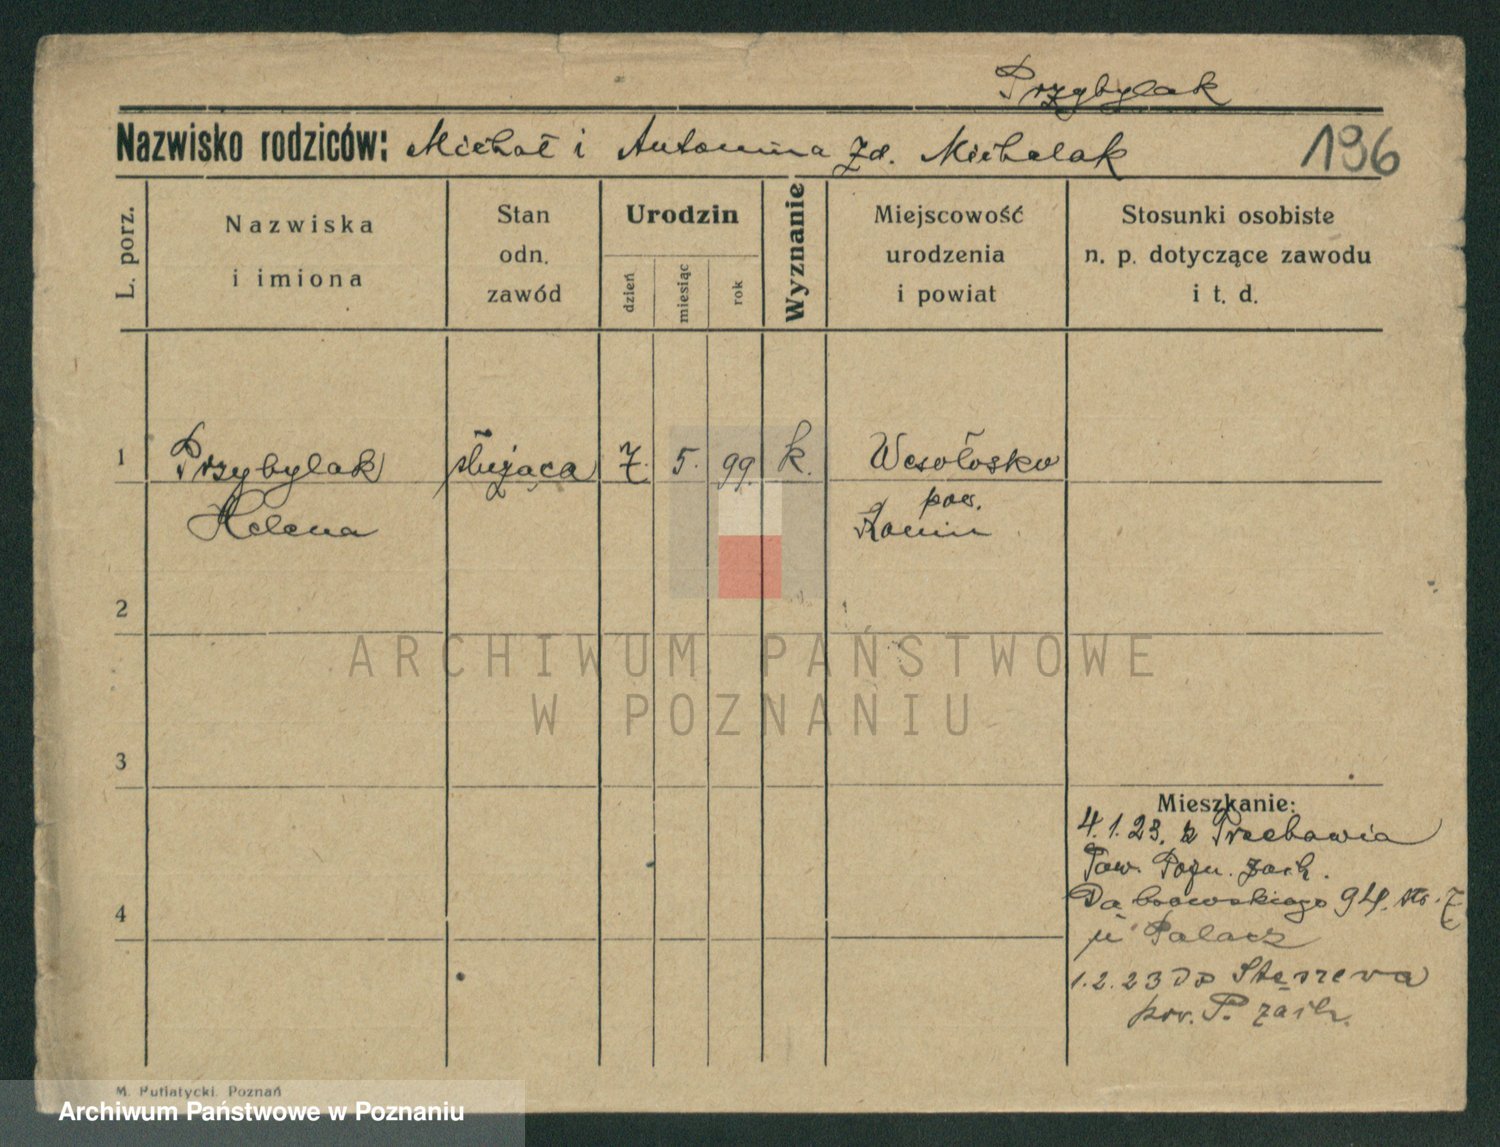 Przybylak
Nazwisko rodziców: Michał i Antonina zd. Michalak
196
L. porz.
Nazwiska
i imiona
Stan
odn.
zawód
Urodzin
dzień
miesiąc
rok
Wyznanie
Miejscowość
urodzenia
i powiat
Stosunki osobiste
n. p. dotyczące zawodu
i t. d.
1 Przybylak służąca 7. 5. 99. k.
Helena
pow.
Konin
2
3
4
ARCHIWUM PAŃSTWOWE
W POZNANIU
Mieszkanie:
4.1.23. z
Pow. Pozn. zach.
Dąbrowskiego 94.
Palacz
1.2.23 do Stęszewa
pow. P. zach.
M. Putiatycki. Poznań
Archiwum Państwowe w Poznaniu